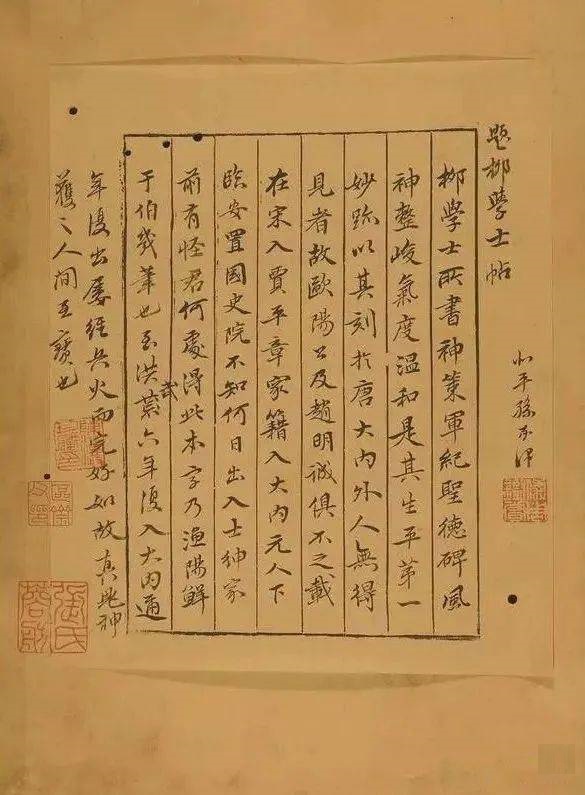 題柳學士帖
北平孫承澤
柳學士所書神策軍紀聖德碑風
神整峻氣度溫和是其生平第一
妙跡以其刻於唐大內外人無得
見者故歐陽公及趙明誠俱不之載
在宋入賈平章家籍入大內元人下
臨安置國史院不知何日出入士紳家
前有怪君何處得此本字乃漁陽鮮
于伯幾筆也至洪武六年復入大內邇
年復出屢經兵火而完好如故真鬼神
護之人間至寶也